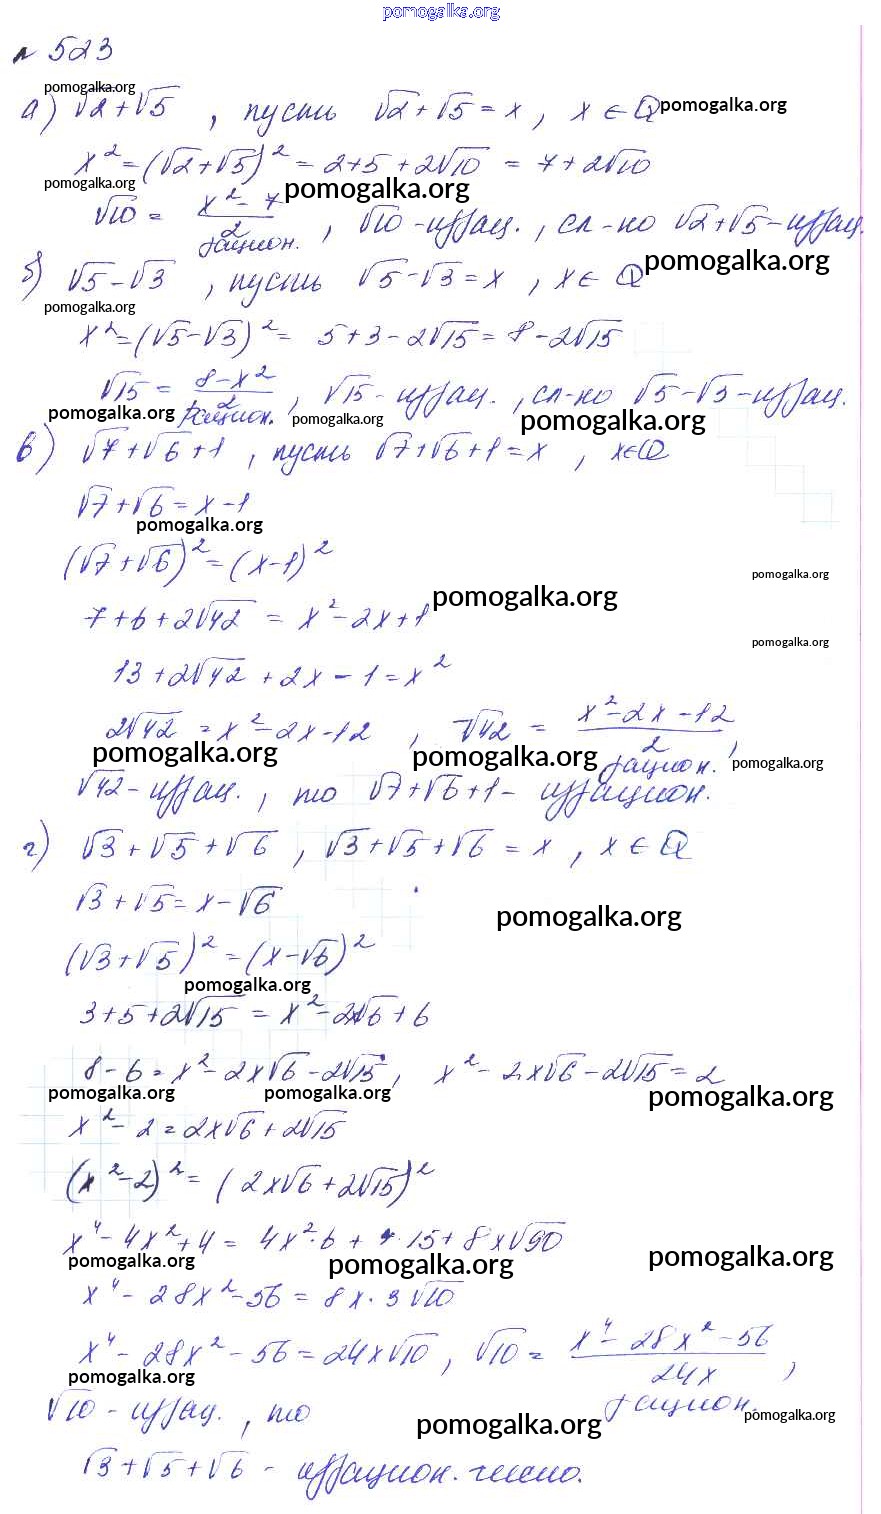 pomogalka.org
№ 523
pomogalka.org
а) √2+√5 , пусть √2+√5 = x, x ∈ Q pomogalka.org
x² = (√2+√5)² = 2+5+2√10 = 7+2√10
pomogalka.org pomogalka.org
√10 = (x²-7)/2 рацион. , √10 - иррац. , сл-но √2+√5 - иррац.
pomogalka.org
б) √5-√3 , пусть √5-√3 = x , x ∈ Q
pomogalka.org
x² = (√5-√3)² = 5+3-2√15 = 8-2√15
√15 = (8-x²)/2 рацион. , √15 - иррац. , сл-но √5-√3 - иррац.
pomogalka.org pomogalka.org pomogalka.org
в) √7+√6+1 , пусть √7+√6+1 = x , x ∈ Q
√7+√6 = x-1
pomogalka.org
(√7+√6)² = (x-1)²
pomogalka.org
pomogalka.org
7+6+2√42 = x²-2x+1
pomogalka.org
13+2√42+2x-1 = x²
2√42 = x²-2x-12 , √42 = (x²-2x-12)/2 рацион. ,
pomogalka.org pomogalka.org pomogalka.org
√42 - иррац. , то √7+√6+1 - иррацион.
г) √3+√5+√6 , √3+√5+√6 = x , x ∈ Q
√3+√5 = x-√6
pomogalka.org
(√3+√5)² = (x-√6)²
pomogalka.org
3+5+2√15 = x²-2x√6+6
8-6 = x²-2x√6-2√15 , x²-2x√6-2√15 = 2
pomogalka.org pomogalka.org pomogalka.org
x²-2 = 2x√6+2√15
(x²-2)² = (2x√6+2√15)²
x⁴-4x²+4 = 4x²·6+4·15+8x√90
pomogalka.org pomogalka.org pomogalka.org
x⁴-28x²-56 = 8x·3√10
x⁴-28x²-56 = 24x√10 , √10 = (x⁴-28x²-56)/24x рацион. ,
pomogalka.org
√10 - иррац. , то
pomogalka.org pomogalka.org
√3+√5+√6 - иррацион. число.